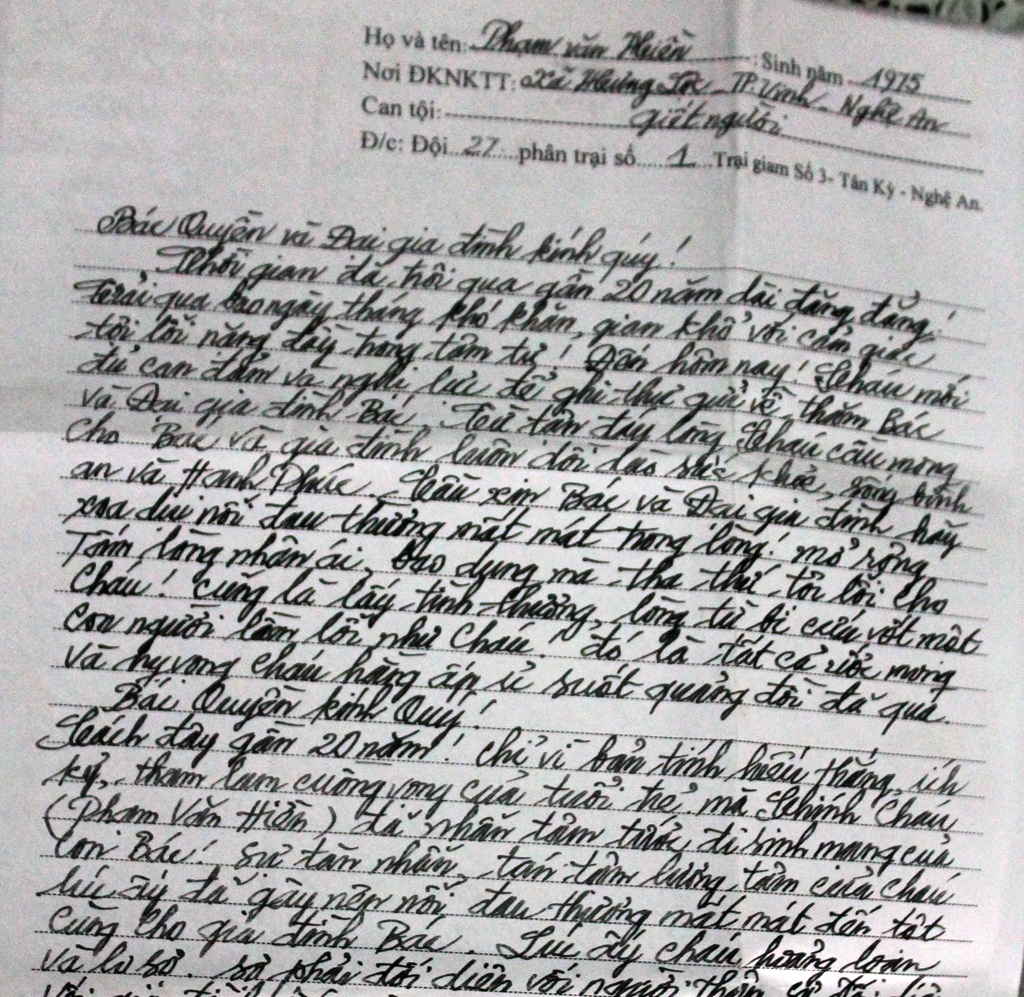 Họ và tên: Phạm văn Hiền Sinh năm 1975
Nơi ĐKNKTT: Xã Hưng Lộc TP. Vinh - Nghệ An
Can tội: giết người
Đ/c: Đội 27 phân trại số 1 Trại giam Số 3- Tân Kỳ - Nghệ An.
Bác Quyền và Đại gia đình kính quý!
Thời gian đã trôi qua gần 20 năm dài đằng đẵng!
Trải qua bao ngày tháng khó khăn, gian khổ với cảm giác
tội lỗi nặng đầy trong tâm tư! Đến hôm nay! Cháu mới
đủ can đảm và nghị lực để ghi thư gửi về thăm Bác
và Đại gia đình Bác. Từ tận đáy lòng Cháu cầu mong
cho Bác và gia đình luôn dồi dào sức khỏe, sống bình
an và Hạnh Phúc. Cầu xin Bác và Đại gia đình hãy
xoa dịu nỗi đau thương mất mát trong lòng! mở rộng
Tấm lòng nhân ái, bao dung mà tha thứ tội lỗi cho
Cháu! cũng là lấy tình thương, lòng từ bi cứu vớt một
con người lầm lỗi như Cháu! đó là tất cả ước mong
và hy vọng cháu hằng ấp ủ suốt quãng đời đã qua
Bác Quyền kính Quý!
Cách đây gần 20 năm! chỉ vì bản tính hiếu thắng, ích
kỷ, tham lam cuồng vọng của tuổi trẻ mà Chính Cháu
(Phạm Văn Hiền) đã nhẫn tâm tước đi sinh mạng của
Con Bác! sự tàn nhẫn, tán tận lương tâm của cháu
lúc ấy đã gây nên nỗi đau thương mất mát đến tột
cùng cho gia đình Bác. Lúc ấy cháu hoảng loạn
và lo sợ. sợ phải đối diện với người thân